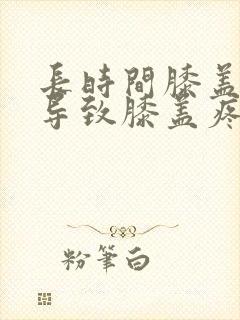 長時間膝蓋
导致膝盖疼
粉筆白